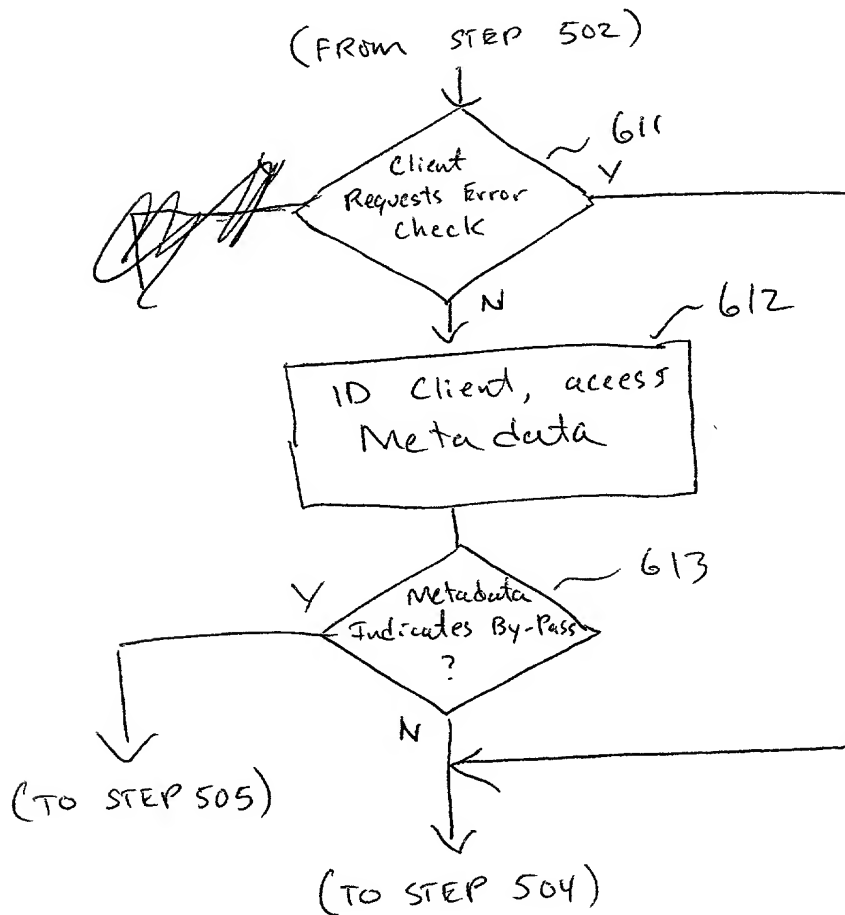 (FROM STEP 502)
611
Client
Requests Error
Check
Y
N
612
ID Client, access
Metadata
613
Y
Metadata
Indicates By-Pass
?
N
(TO STEP 505)
(TO STEP 504)